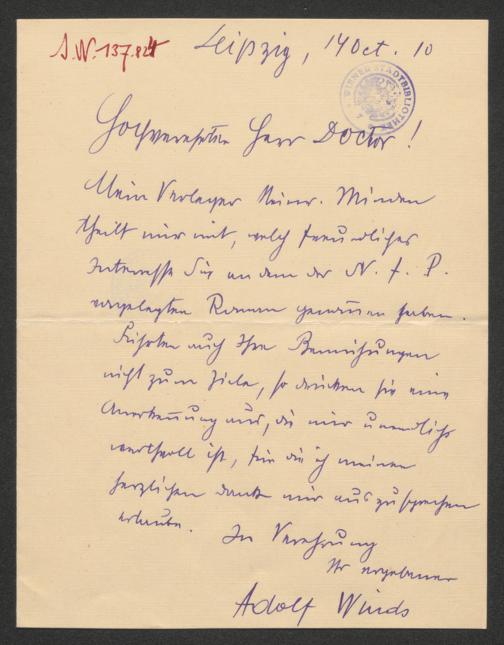 J.N. 137.824
Leipzig, 14 Oct. 10
WIENER STADTBIBLIOTHEK
Hochverehrter Herr Doctor!
Mein Verleger Minden
theilt mir mit, welch freundliches
Interesse Sie an dem der N. f. P.
vorgelegten Roman genommen haben.
Führten auch Ihre Bemühungen
nicht zum Ziele, so drücken sie eine
Anerkennung aus, die mir unendlich
werthvoll ist, für die ich meinen
herzlichen Dank mir auszusprechen
erlaube.
In Verehrung
Ihr ergebener
Adolf Winds